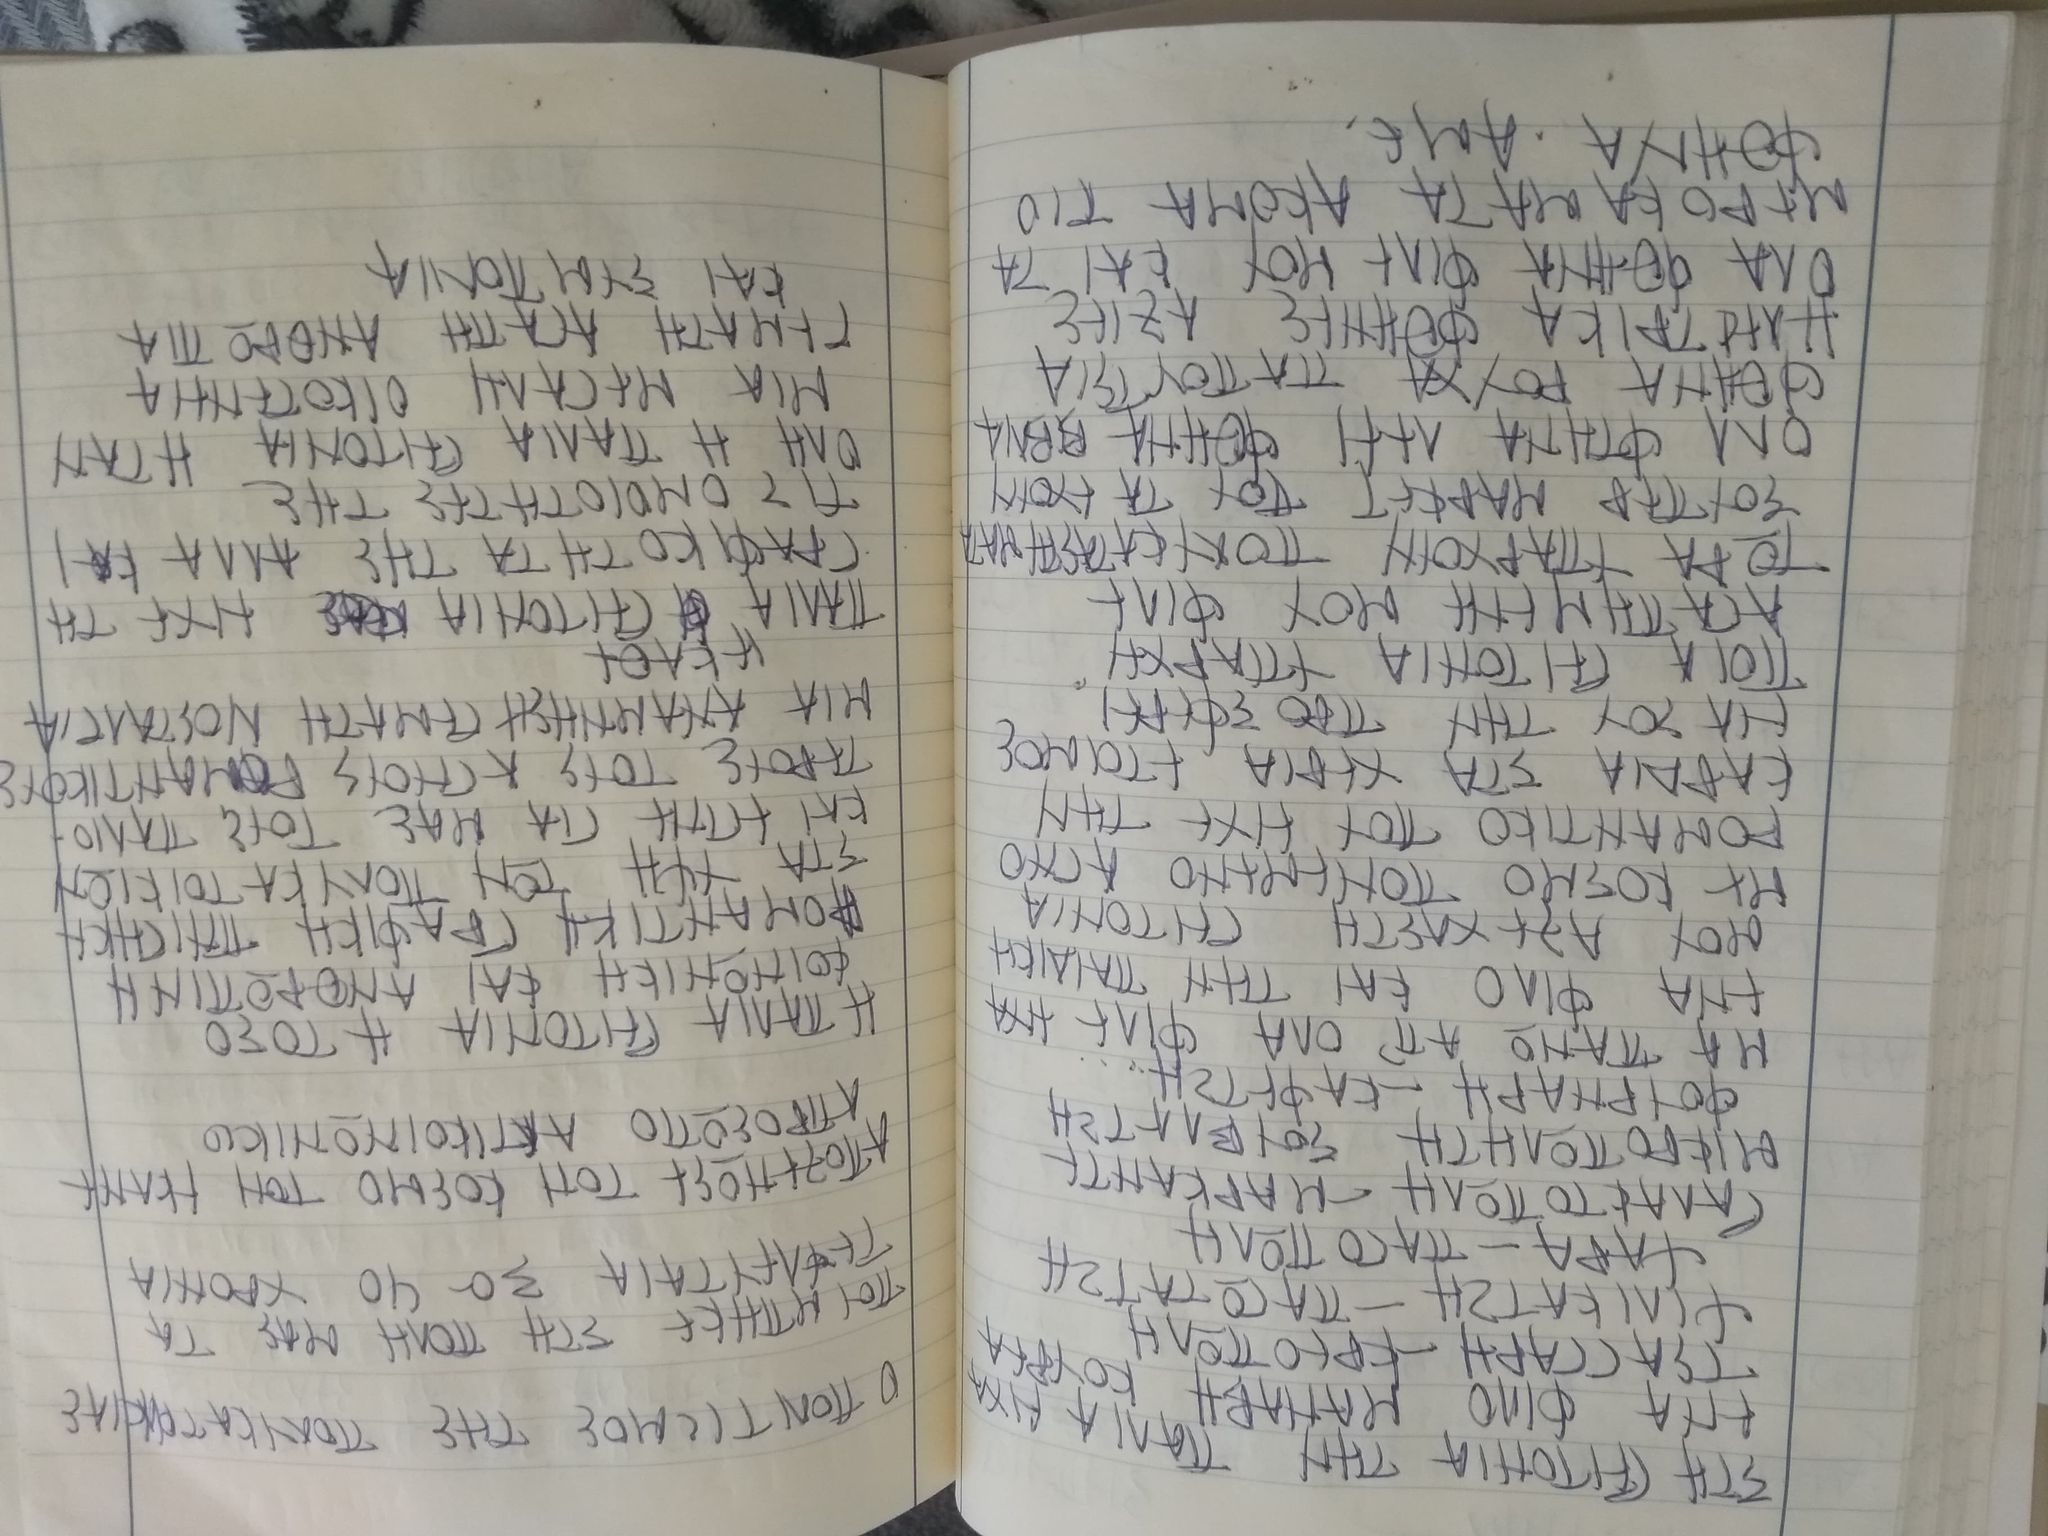 ΣΤΗ ΓΙΤΟΝΙΑ ΤΗΝ ΠΑΛΙΑ ΗΧΑ
ΕΝΑ ΦΙΛΟ ΜΑΝΑΒΗ ΚΟΥΡΕΑ
ΤΣΑΓΓΑΡΗ – ΕΡΓΟΠΟΛΗ
ΓΙΑΓΚΑΤΖΗ – ΠΑΓΟΤΑΤΖΗ
– ΠΑΓΟΠΟΛΗ
ΓΑΛΑΚΤΟΠΟΛΗ – ΜΑΡΚΑΝΤΕ
ΜΙΚΡΟΠΟΛΗΤΗ ΣΟΥΒΛΑΤΖΗ
ΦΟΥΡΝΑΡΗ – ΚΑΦΕΤΖΗ...
ΜΑ ΠΑΝΩ ΑΠ ΟΛΑ ΦΙΛΕ ΗΧΑ
ΕΝΑ ΦΙΛΟ ΚΑΙ ΤΗΝ ΠΑΛΑΙΚΗ
ΜΟΥ ΑΞΕΧΑΣΤΗ ΓΙΤΟΝΙΑ
ΜΕ ΚΟΣΜΟ ΠΟΝΕΜΑΝΟ ΑΓΝΟ
ΡΟΜΑΝΤΙΚΟ ΠΟΥ ΗΧΕ ΤΗΝ
ΚΑΡΔΙΑ ΣΤΑ ΧΕΡΙΑ ΕΤΟΙΜΟΣ
ΝΑ ΣΟΥ ΤΗΝ ΠΡΟΣΦΕΡΗ.
ΠΟΙΑ ΓΙΤΟΝΙΑ ΥΠΑΡΧΗ
ΑΓΑΠΗΜΕΝΕ ΜΟΥ ΦΙΛΕ
ΤΩΡΑ ΥΠΑΡΧΟΥΝ ΠΟΛΥΚΑΤΑΣΤΗΜΑΤΑ
ΣΟΥΠΕΡ ΜΑΡΚΕΤ ΠΟΥ ΤΑ ΕΧΟΥΝ
ΟΛΑ ΦΤΗΝΑ ΛΕΕΙ ΦΘΗΝΑ ΒΙΒΛΙΑ
ΦΘΗΝΑ ΡΟΥΧΑ ΠΑΠΟΥΤΣΙΑ
ΗΛΕΚΤΡΙΚΑ ΦΘΗΝΕΣ ΑΞΙΕΣ
ΟΛΑ ΦΘΗΝΑ ΦΙΛΕ ΜΟΥ ΚΑΙ ΤΑ
ΜΕΡΟΚΑΜΑΤΑ ΑΚΟΜΑ ΠΙΟ
ΦΘΗΝΑ. ΑΜΕ.
Ο ΠΟΝΤΙΣΜΟΣ ΤΗΣ ΠΟΛΥΚΑΤΟΙΚΙΑΣ
ΠΟΙ ΜΠΗΚΕ ΣΤΗ ΠΟΛΗ ΜΑΣ ΤΑ
ΤΕΛΕΥΤΑΙΑ 30-40 ΧΡΟΝΙΑ
ΑΠΟΞΕΝΩΣΕ ΤΟΝ ΚΟΣΜΟ ΤΟΝ ΕΚΑΝΕ
ΑΠΡΟΣΩΠΟ ΑΝΤΙΚΟΙΝΩΝΙΚΟ
Η ΠΑΛΙΑ ΓΙΤΟΝΙΑ Η ΤΟΣΟ
ΚΟΙΝΩΝΙΚΗ ΚΑΙ ΑΝΘΡΩΠΙΝΗ
ΡΟΜΑΝΤΙΚΗ ΓΡΑΦΙΚΗ ΠΝΙΓΗΚΗ
ΣΤΑ ΥΨΗ ΤΩΝ ΠΟΛΥΚΑΤΟΙΚΙΩΝ
ΚΑΙ ΕΓΙΝΗ ΓΙΑ ΜΑΣ ΤΟΥΣ ΠΑΛΙΟ-
ΤΕΡΟΥΣ ΤΟΥΣ ΑΓΝΟΥΣ ΡΟΜΑΝΤΙΚΟΥΣ
ΜΙΑ ΑΝΑΜΝΗΣΗ ΓΕΜΑΤΗ ΝΟΣΤΑΛΓΙΑ
ΠΑΛΙΑ ΓΙΤΟΝΙΑ ΗΧΕ ΤΗ
ΓΡΑΦΙΚΟΤΗΤΑ ΤΗΣ ΑΛΛΑ ΚΑΙ
ΤΙΣ ΟΜΟΙΟΤΗΤΕΣ ΤΗΣ
ΟΛΗ Η ΠΑΛΙΑ ΓΙΤΟΝΙΑ ΗΤΑΝ
ΜΙΑ ΜΕΓΑΛΗ ΟΙΚΟΓΕΝΗΑ
ΓΕΜΑΤΗ ΑΓΑΠΗ ΑΝΘΡΩΠΙΑ
ΚΑΙ ΣΥΜΠΟΝΙΑ